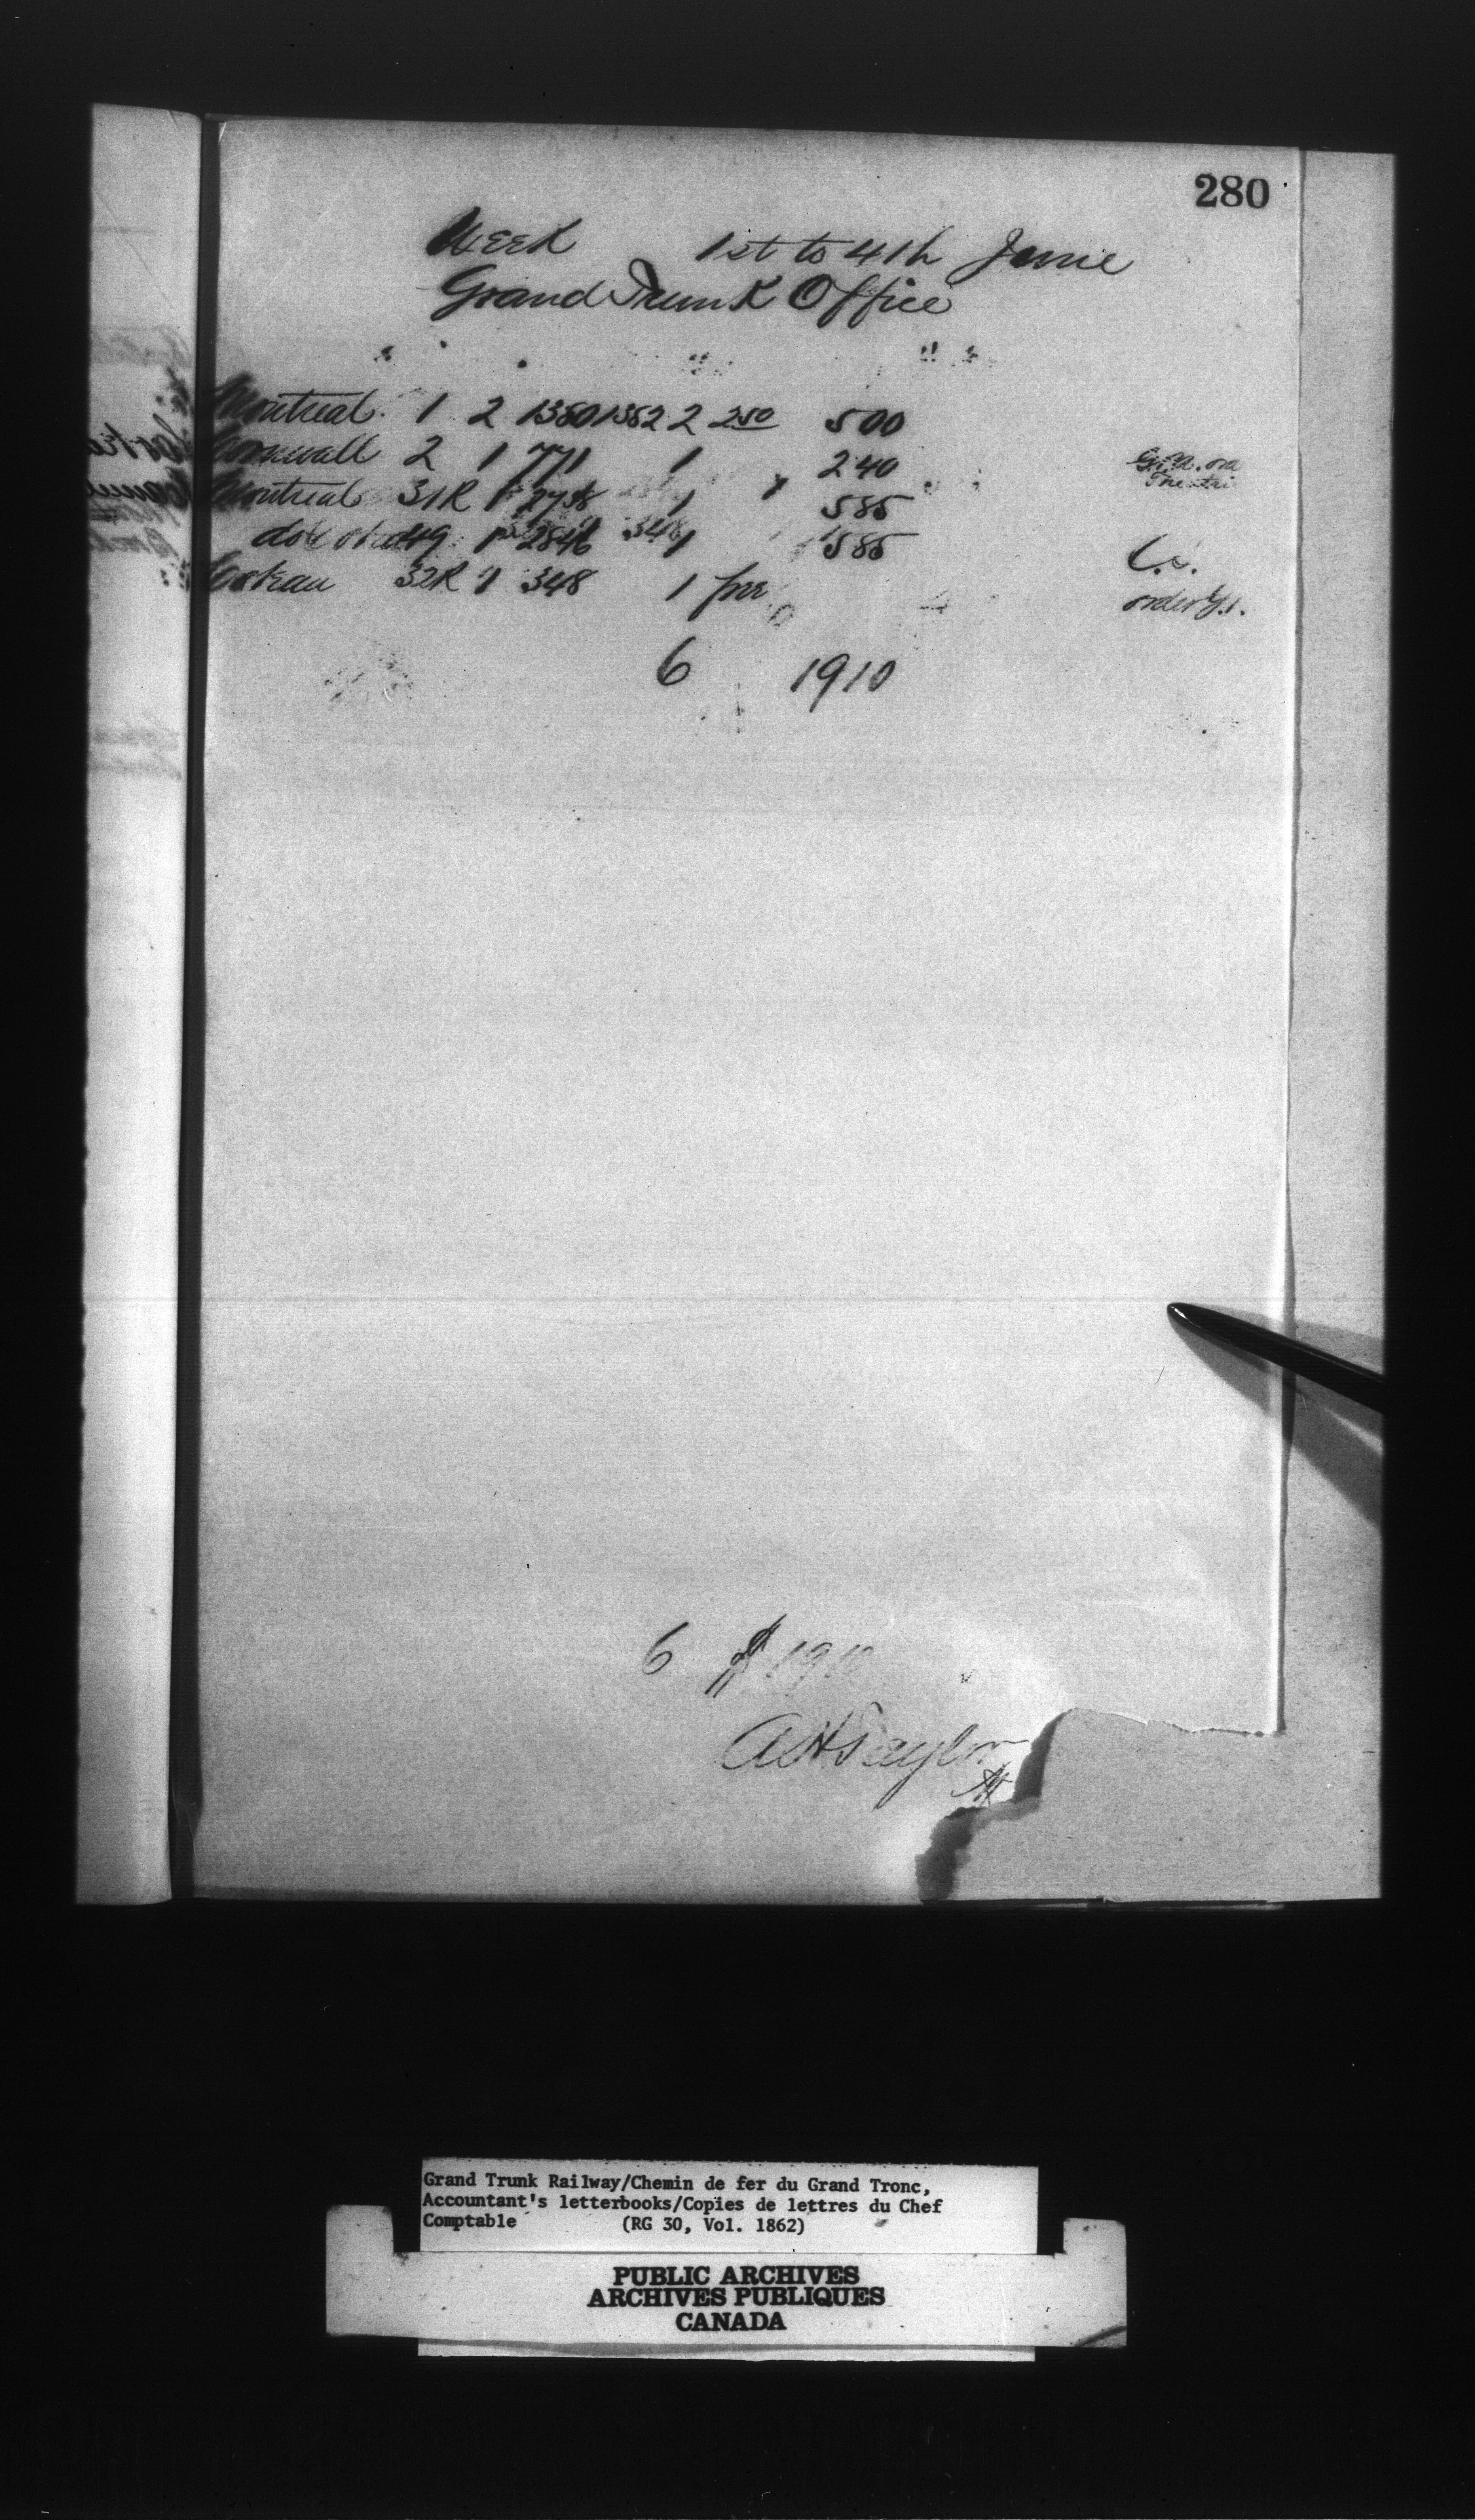 280
Week 1st to 4th June
Grand Trunk Office
Montreal 1 2 1380 1382 2 250 500
Cornwall 2 1 771 1 240
Montreal 31R 1 2758 1 585
do 49 1 2846 1 585
Coteau 32R 1 348 1 free order
6 1910
6 $ 1910
A H Taylor
Grand Trunk Railway/Chemin de fer du Grand Tronc,
Accountant's letterbooks/Copies de lettres du Chef
Comptable (RG 30, Vol. 1862)
PUBLIC ARCHIVES
ARCHIVES PUBLIQUES
CANADA